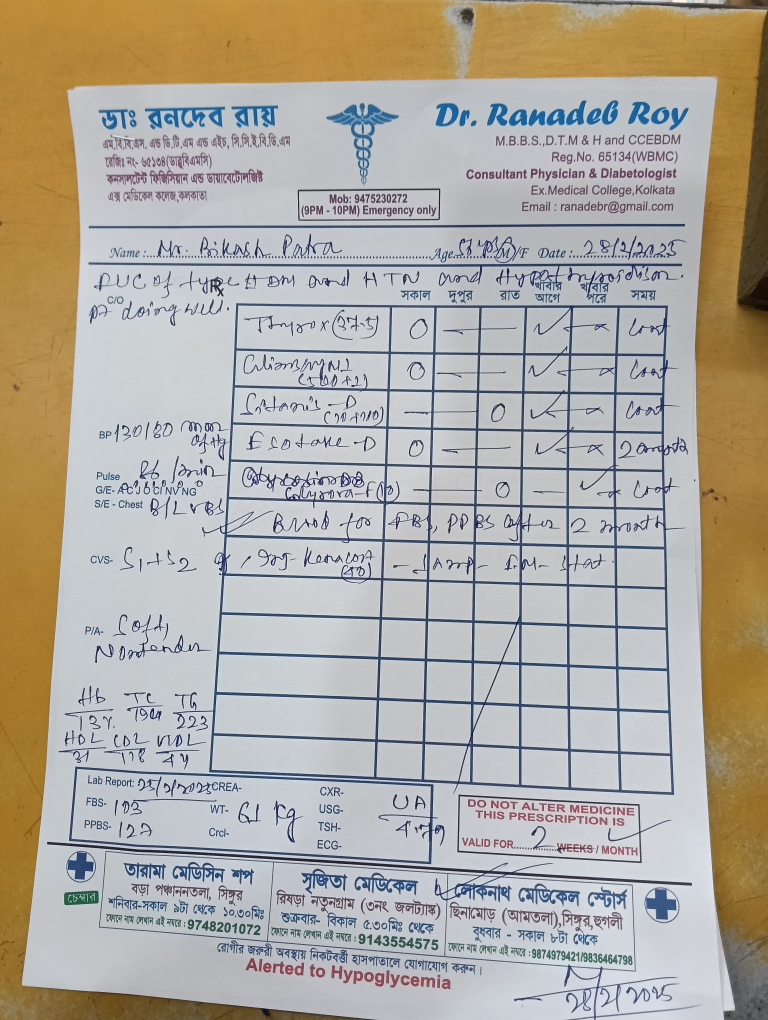 ডাঃ রনদেব রায়
এম.বি.বি.এস. এন্ড ডি.টি.এম এন্ড এইচ, সি.সি.ই.বি.ডি.এম
রেজিঃ নং- ৬৫১৩৪(ডাব্লুবিএমসি)
কনসালটেন্ট ফিজিসিয়ান এন্ড ডায়াবেটোলজিষ্ট
এক্স মেডিকেল কলেজ,কলকাতা
Mob: 9475230272
(9PM - 10PM) Emergency only
Dr. Ranadeb Roy
M.B.B.S.,D.T.M & H and CCEBDM
Reg.No. 65134(WBMC)
Consultant Physician & Diabetologist
Ex.Medical College,Kolkata
Email : ranadebr@gmail.com
Name : Mr. Bikash Patra Age (M)/F Date : 28/2/2025
of type II DM and HTN and Hypothyroidism.
C/O Rx
Pt doing well.
সকাল দুপুর রাত খাবার আগে খাবার পরে সময়
Thyrox (37.5) O — — ✓ Cont
(500+2) O — ✓ Cont
— D — O ✓ Cont
Esotake-D O — ✓ 2 month
F(10) — O — ✓ Cont
Blood for FBS, PPBS after 2 month
Inj- Kenacort (40) — 1 Amp - IM - Stat
BP 130/80 mm of Hg
Pulse 86 /min
G/E-
S/E - Chest B/L VBS
CVS- S1+S2
P/A- Soft,
Nontender
Hb TC TG
13% 223
HDL LDL VLDL
31 178 44
Lab Report: 25/2/2025 CREA-
FBS- 103
PPBS- 127
WT- 61 Kg
Crcl-
CXR-
USG-
TSH-
ECG-
UA
DO NOT ALTER MEDICINE
THIS PRESCRIPTION IS
VALID FOR 2 WEEKS / MONTH
চেম্বার
তারামা মেডিসিন শপ
বড়া পঞ্চাননতলা, সিঙ্গুর
শনিবার-সকাল ৯টা থেকে ১০.৩০মিঃ
ফোনে নাম লেখান এই নম্বরে : 9748201072
সৃজিতা মেডিকেল
রিষড়া নতুনগ্রাম (৩নং জলট্যাঙ্ক)
শুক্রবার- বিকাল ৫.৩০মিঃ থেকে
ফোনে নাম লেখান এই নম্বরে : 9143554575
লোকনাথ মেডিকেল স্টোর্স
ছিনামোড় (আমতলা),সিঙ্গুর,হুগলী
বুধবার - সকাল ৮টা থেকে
ফোনে নাম লেখান এই নম্বরে : 9874979421/9836464798
রোগীর জরুরী অবস্থায় নিকটবর্তী হাসপাতালে যোগাযোগ করুন।
Alerted to Hypoglycemia
28/2/2025